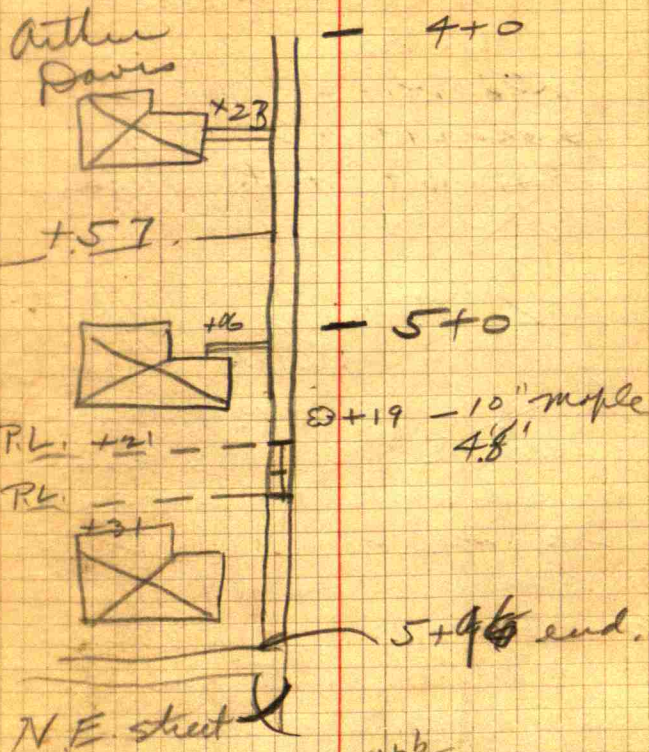 Arthur
Davis
4+0
+23
+57
+06
5+0
+19 - 10" maple
4.8'
P.L. +21
P.L.
+31
5+96 end.
N.E. street